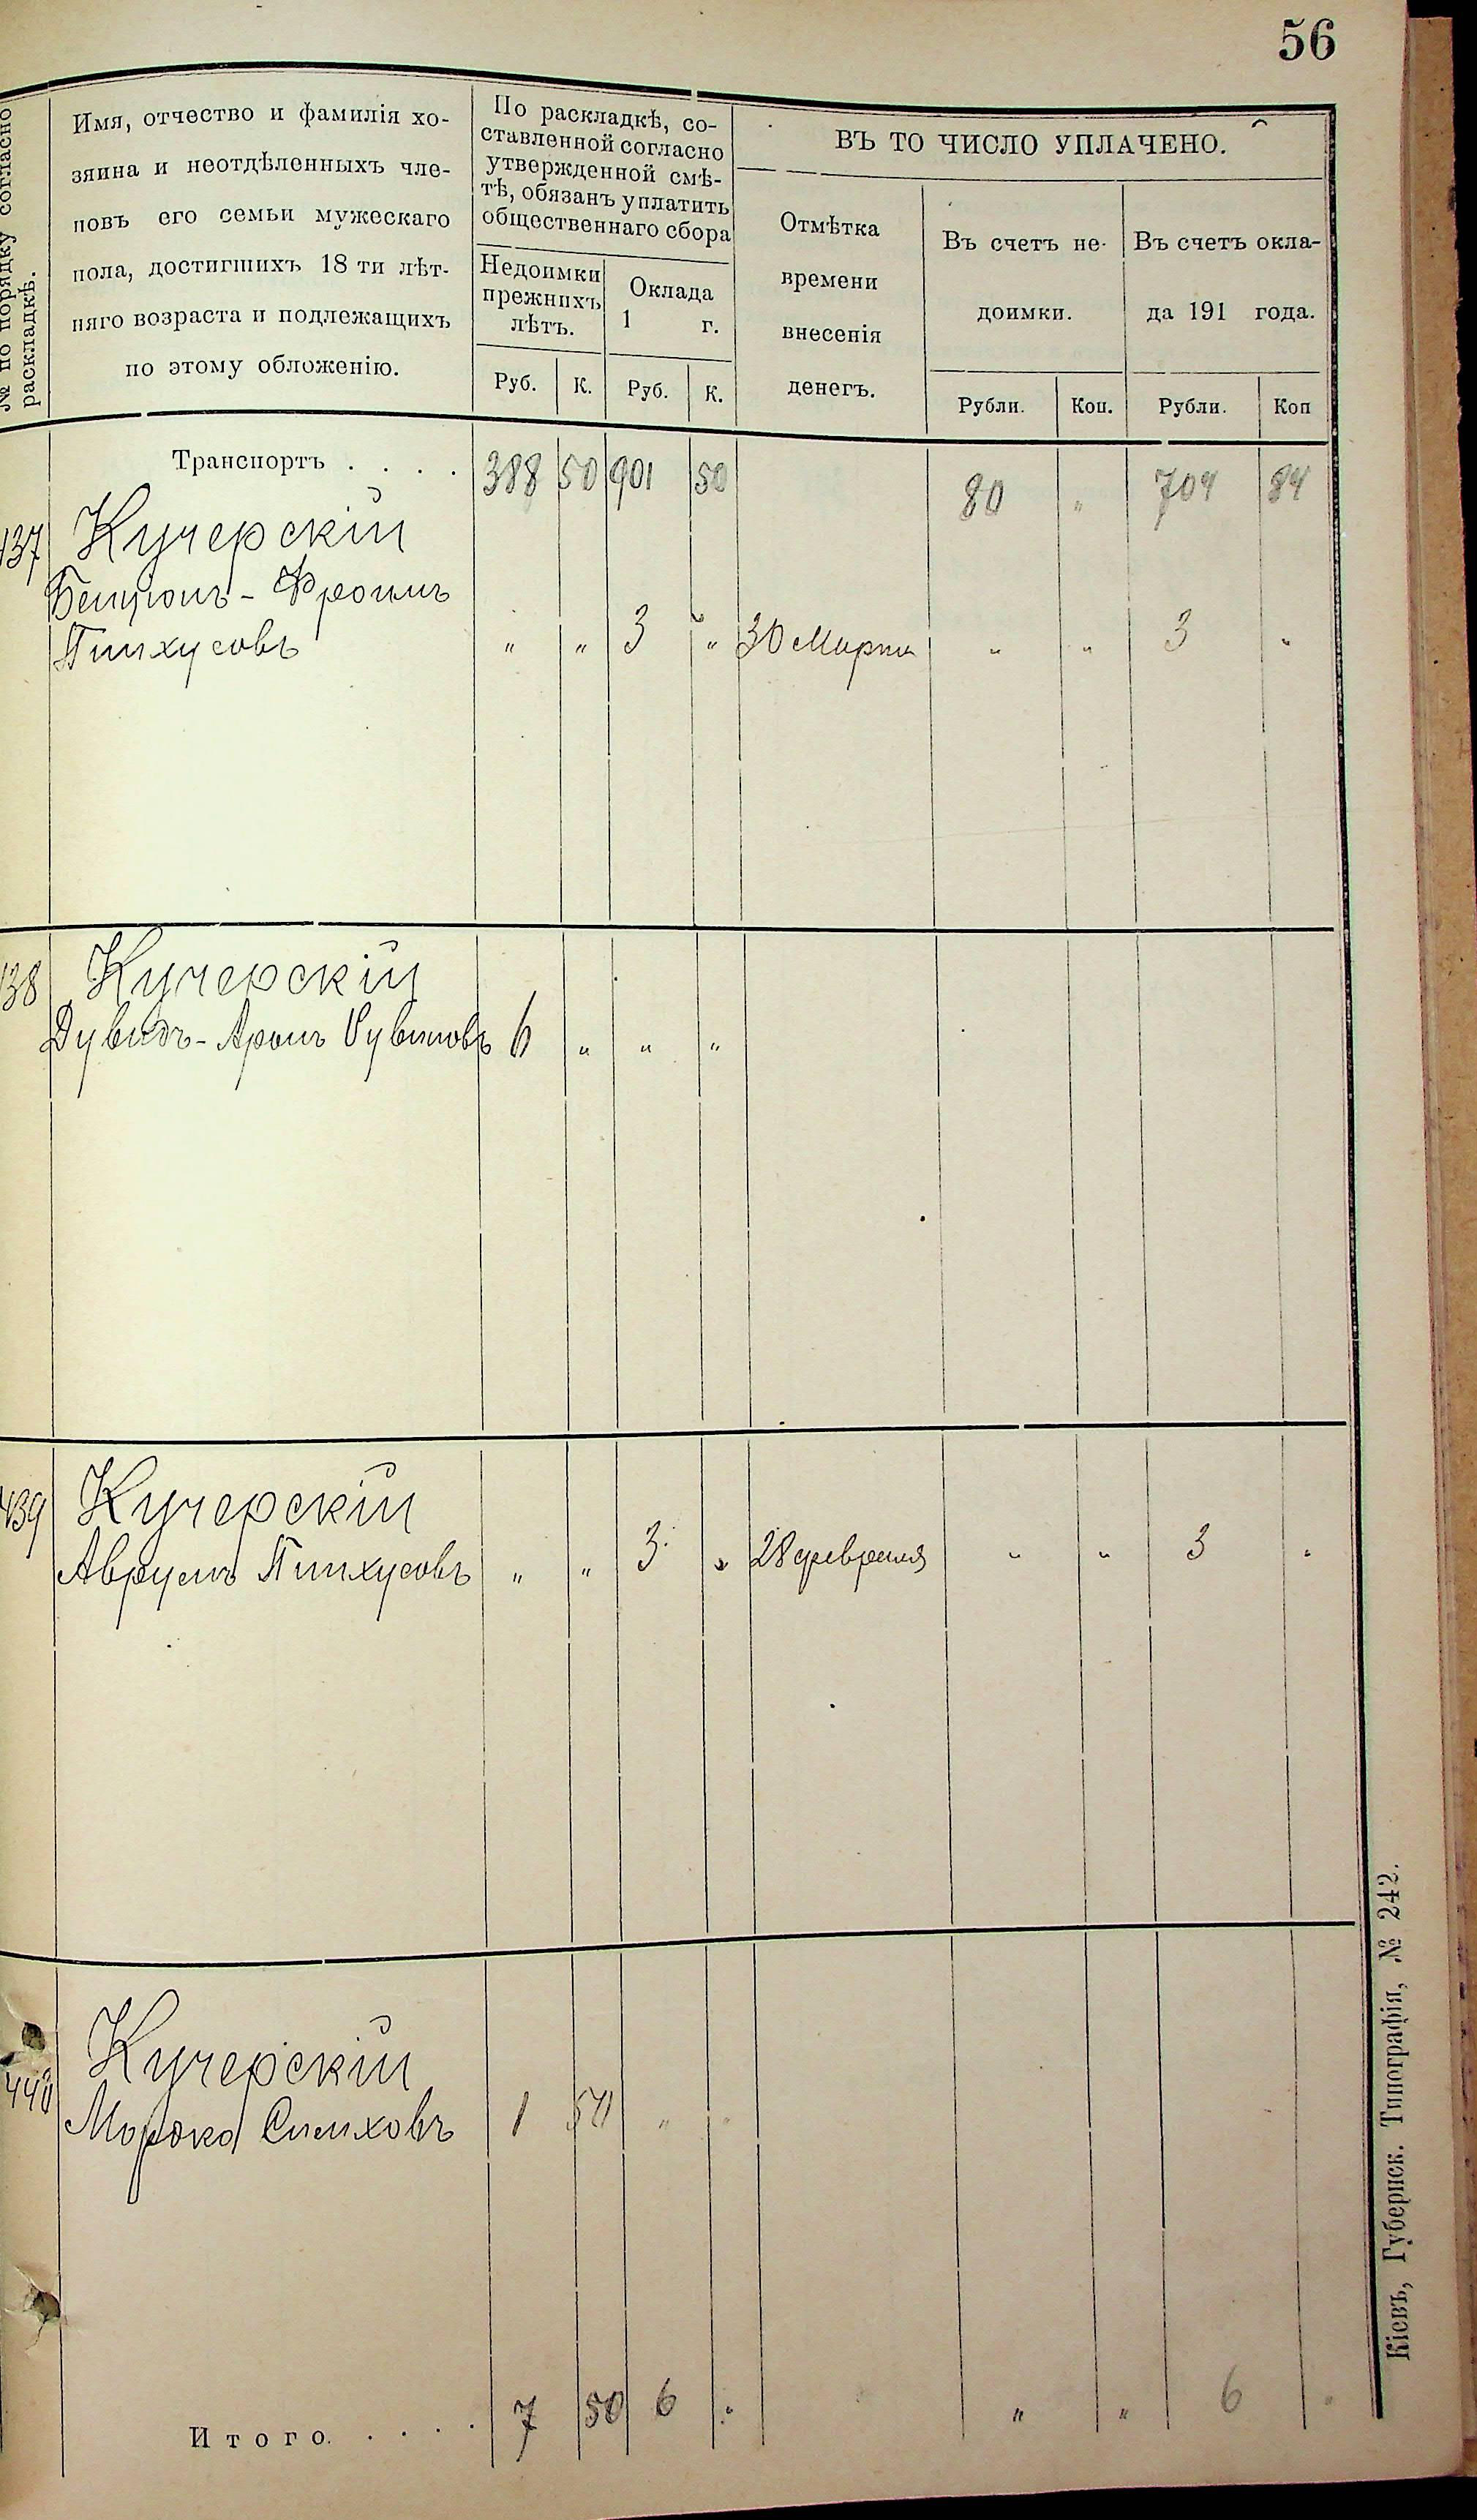 56
№ по порядку согласно
раскладкѣ.
Имя, отчество и фамилія хо-
зяина и неотдѣленныхъ чле-
новъ его семьи мужескаго
пола, достигшихъ 18 ти лѣт-
няго возраста и подлежащихъ
по этому обложенію.
По раскладкѣ, со-
ставленной согласно
утвержденной смѣ-
тѣ, обязанъ уплатить
общественнаго сбора
Недоимки
прежнихъ
лѣтъ.
Оклада
1 г.
Руб. К. Руб. К.
ВЪ ТО ЧИСЛО УПЛАЧЕНО.
Отмѣтка
времени
внесенія
денегъ.
Въ счетъ не-
доимки.
Въ счетъ окла-
да 191 года.
Рубли. Коп. Рубли. Коп
Транспортъ . . . . 388 50 901 50 80 „ 704 84
137 Кучерскій
Бенціонъ-Фроимъ
Пинхусовъ „ „ 3 „ 30 Марта „ „ 3 „
138 Кучерскій
Дувидъ-Аронъ Рувиновъ 6 „ „ „
439 Кучерскій
Аврумъ Пинхусовъ „ „ 3 „ 28 февраля „ „ 3 „
440 Кучерскій
Мордко Симховъ 1 50 „ „
Итого. . . . . 7 50 6 „ „ „ 6 „
Кіевъ, Губернск. Типографія, № 242.